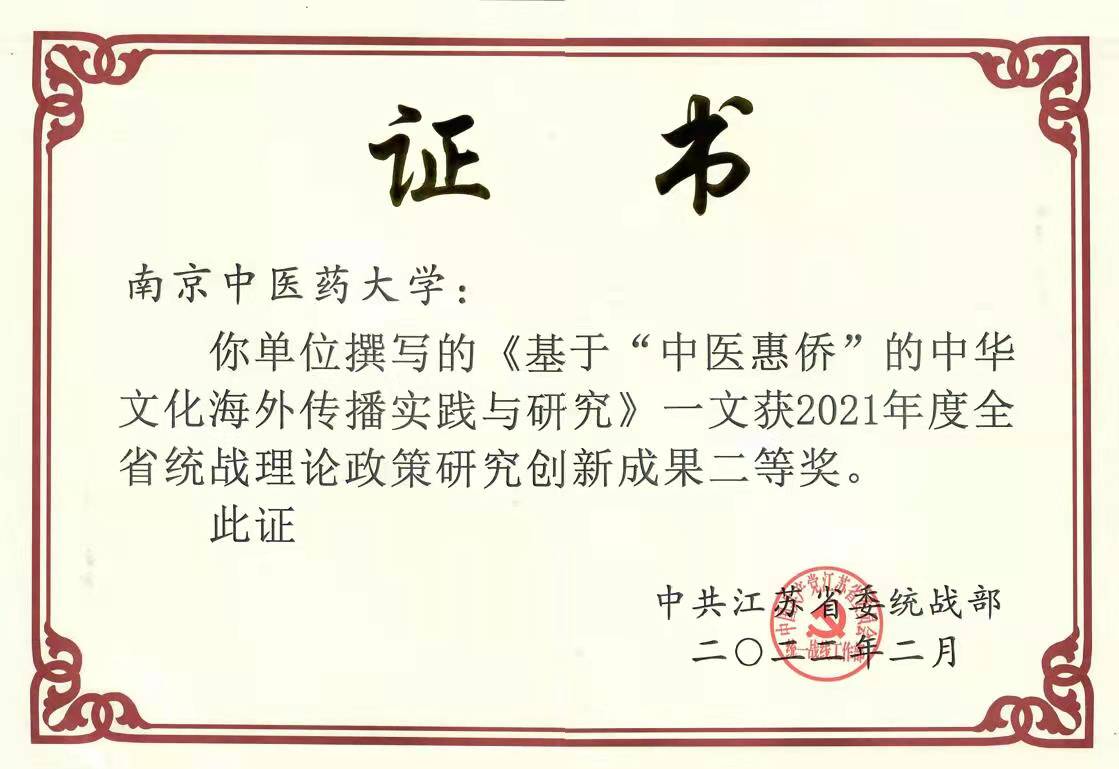 证 书
南京中医药大学：
你单位撰写的《基于“中医惠侨”的中华
文化海外传播实践与研究》一文获2021年度全
省统战理论政策研究创新成果二等奖。
此证
中共江苏省委统战部
二〇二二年二月
中国共产党江苏省委员会
统一战线工作部